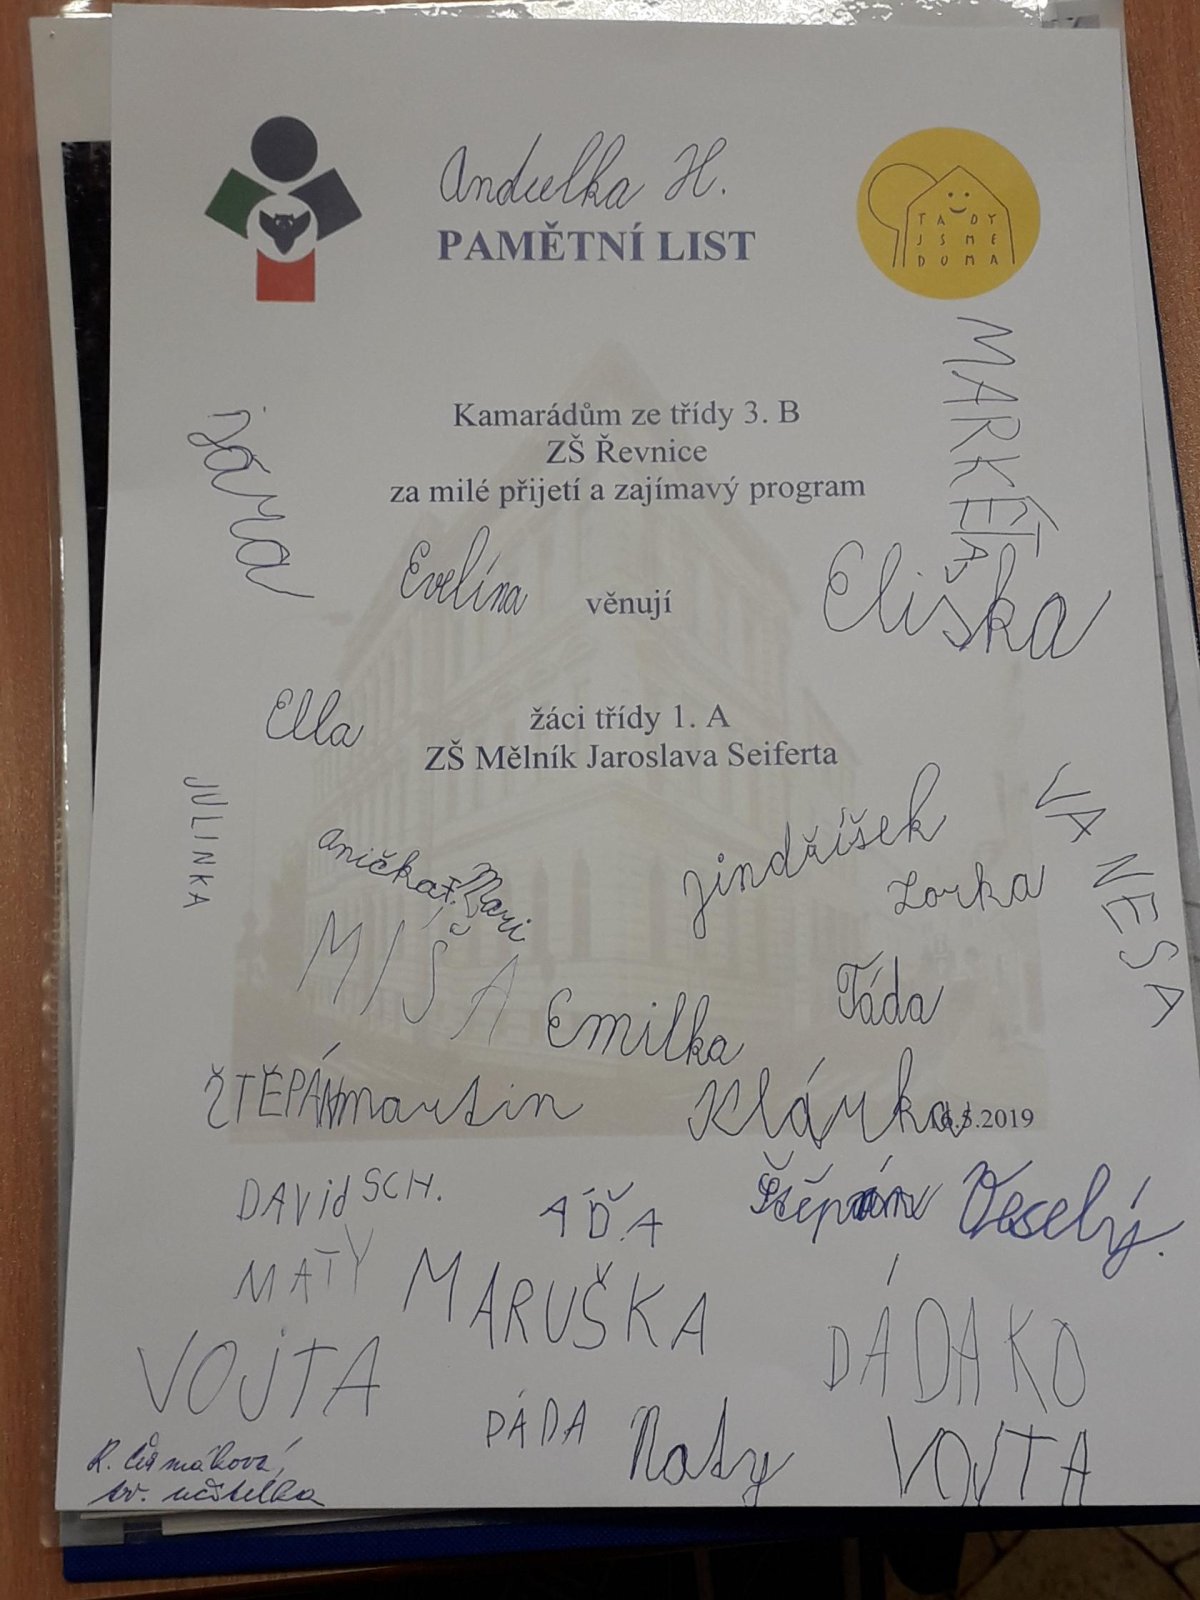 Andulka H.
PAMĚTNÍ LIST
TADY
JSME
DOMA
MARKÉTA
Jára
Kamarádům ze třídy 3. B
ZŠ Řevnice
za milé přijetí a zajímavý program
Evelína
věnují
Eliška
Ella
žáci třídy 1. A
ZŠ Mělník Jaroslava Seiferta
JULINKA
VANESA
Anička F.
Mari
Jindříšek
Lorka
MÍŠA
Emilka
Táda
ŠTĚPÁN
Martin
Klárka
16.5.2019
DAViD SCH.
ÁĎA
Štěpán Veselý.
MATY
MARUŠKA
DÁDA KO
VOJTA
PÁDA
Naty
VOJTA
tř. učitelka